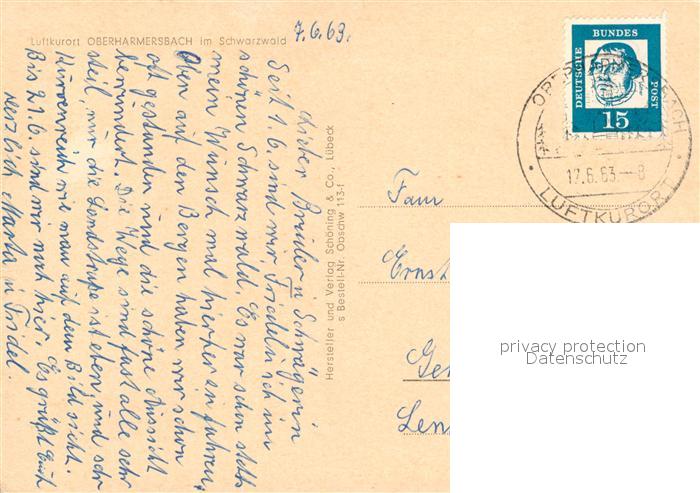 Luftkurort OBERHARMERSBACH im Schwarzwald
7.6.63.
Lieber Bruder u Schwägerin
Seit 1.6. sind wir, Friedel u ich im
schönen Schwarzwald. Es war schon stets
mein Wunsch mal hierher zu fahren.
Oben auf den Bergen haben wir schon
oft gestanden und die schöne Aussicht
bewundert. Die Wege sind fast alle sehr
steil, nur die Landstraße ist eben und sehr
kurvenreich wie man auf dem Bild sieht.
Bis 21.6. sind wir noch hier. Es grüßt Euch
herzlich Marta u Friedel.
Hersteller und Verlag Schöning & Co., Lübeck
s Bestell-Nr. Obschw 113-f
DEUTSCHE BUNDES POST
15
OBERHARMERSBACH
17.6.63-8
LUFTKURORT
Fam
Ernst
Ge
Len
privacy protection
Datenschutz